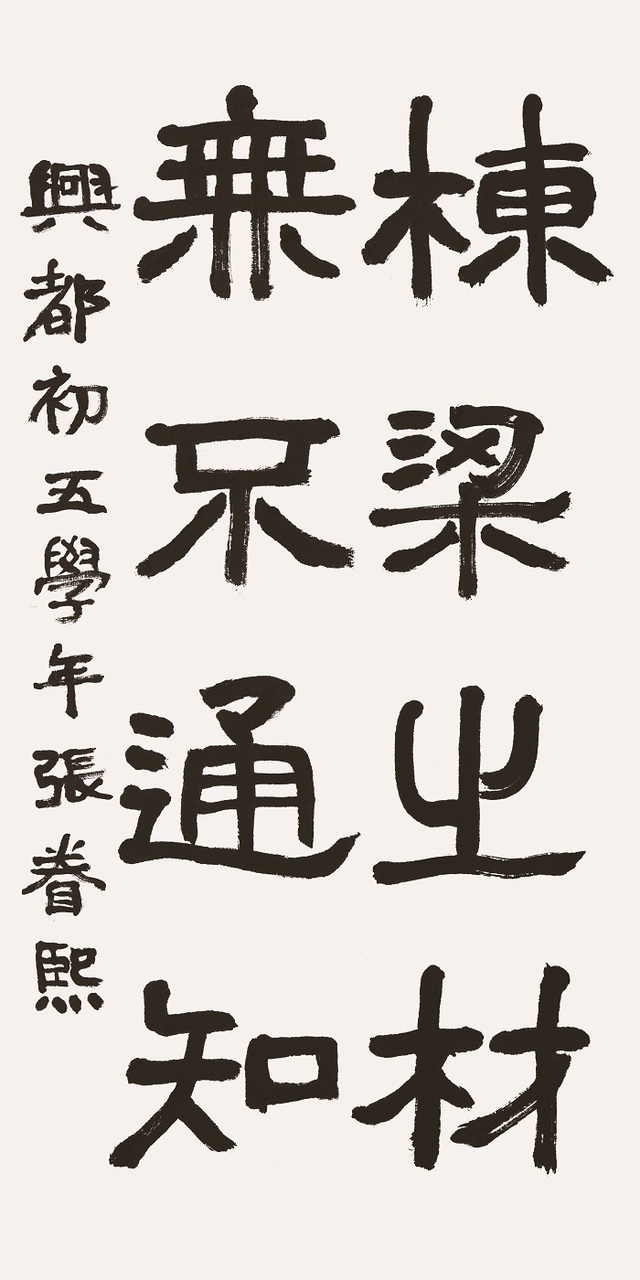 棟梁之材
無不通知
興都初五學年張眷熙